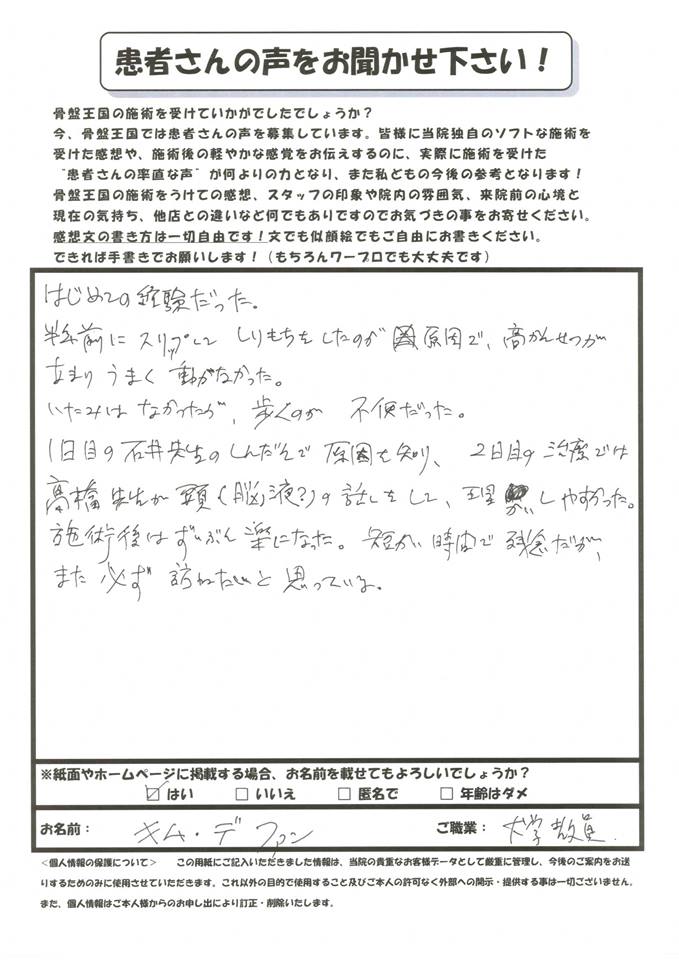 患者さんの声をお聞かせ下さい！
骨盤王国の施術を受けていかがでしたでしょうか？
今、骨盤王国では患者さんの声を募集しています。皆様に当院独自のソフトな施術を
受けた感想や、施術後の軽やかな感覚をお伝えするのに、実際に施術を受けた
“患者さんの率直な声”が何よりの力となり、また私どもの今後の参考となります！
骨盤王国の施術をうけての感想、スタッフの印象や院内の雰囲気、来院前の心境と
現在の気持ち、他店との違いなど何でもありですのでお気づきの事をお寄せください。
感想文の書き方は一切自由です！文でも似顔絵でもご自由にお書きください。
できれば手書きでお願いします！（もちろんワープロでも大丈夫です）
はじめての経験だった。
半年前にスリップして しりもちをしたのが 原因で、高かんせつが
あまり うまく 動がなかった。
いたみは なかったが、歩くのが 不便だった。
1日目の石井先生のしんだんで 原因を知り、2日目の治療では
高橋先生が 頭（脳）液？）の話しをして、理 がしやすかった。
施術後はずいぶん楽になった。短かい時間で残念だが、
また 必ず 訪ねたいと 思っている。
※紙面やホームページに掲載する場合、お名前を載せてもよろしいでしょうか？
☑ はい □ いいえ □ 匿名で □ 年齢はダメ
お名前： キム・デファン ご職業： 大学教員.
＜個人情報の保護について＞ この用紙にご記入いただきました情報は、当院の貴重なお客様データとして厳重に管理し、今後のご案内をお送
りするためのみに使用させていただきます。これ以外の目的で使用すること及びご本人の許可なく外部への開示・提供する事は一切ございません。
また、個人情報はご本人様からのお申し出により訂正・削除いたします。